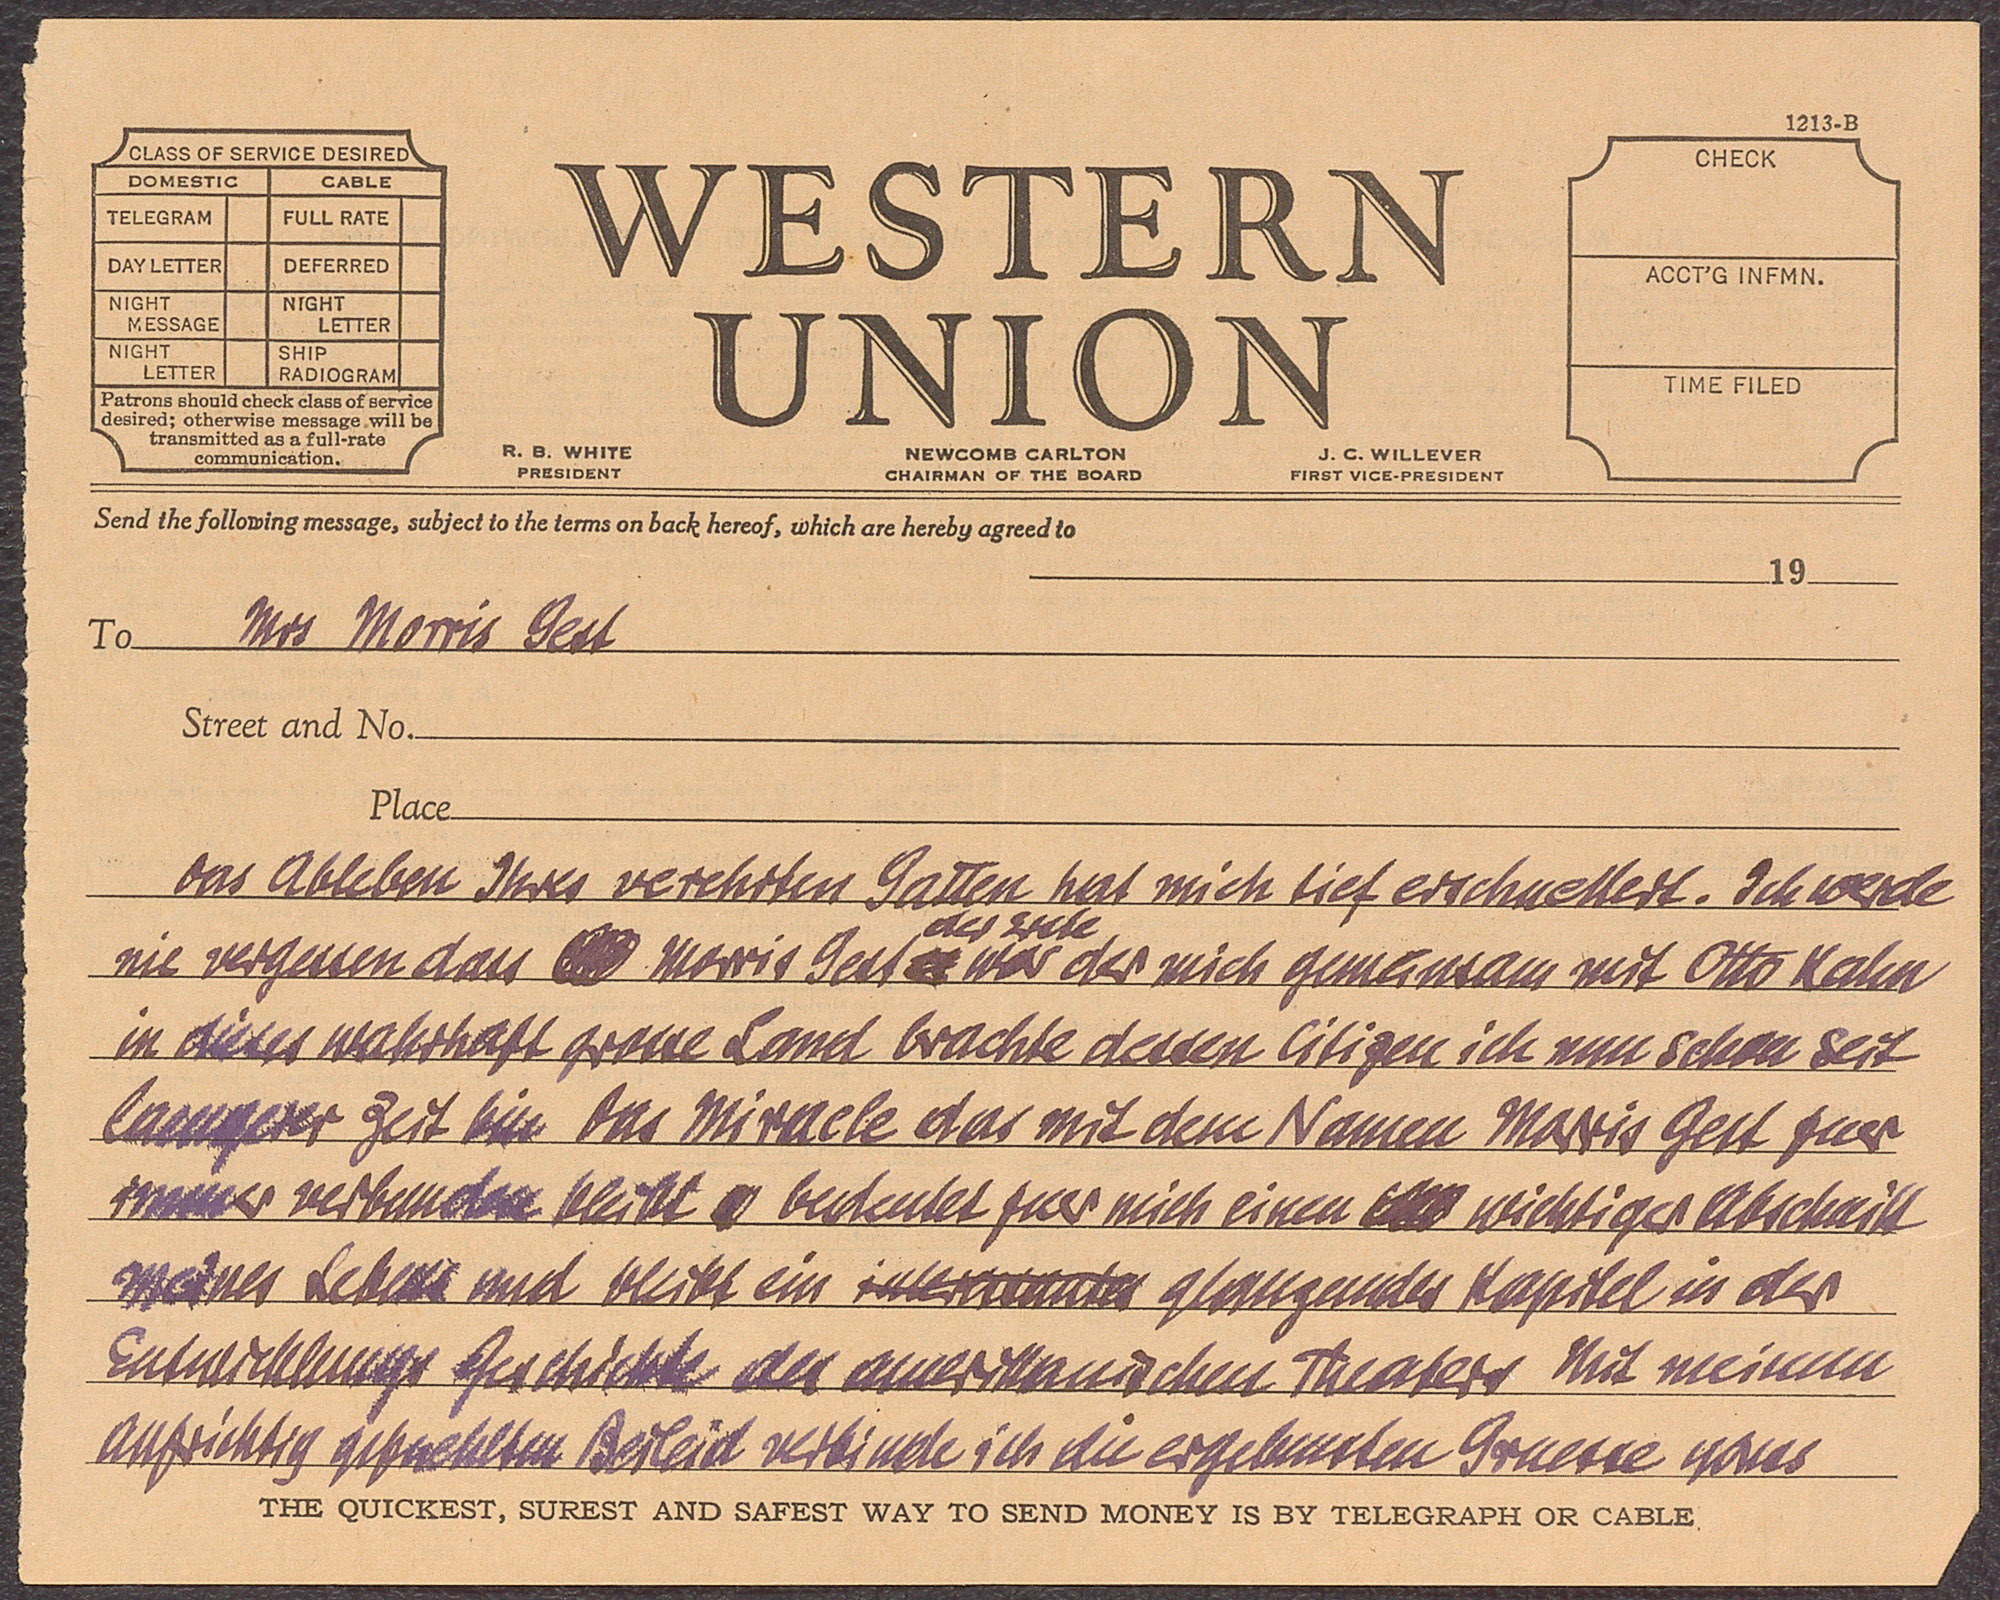 1213-B
CLASS OF SERVICE DESIRED
DOMESTIC CABLE
TELEGRAM FULL RATE
DAY LETTER DEFERRED
NIGHT MESSAGE NIGHT LETTER
NIGHT LETTER SHIP RADIOGRAM
Patrons should check class of service
desired; otherwise message will be
transmitted as a full-rate
communication.
WESTERN
UNION
R. B. WHITE
PRESIDENT
NEWCOMB CARLTON
CHAIRMAN OF THE BOARD
J. C. WILLEVER
FIRST VICE-PRESIDENT
CHECK
ACCT'G INFMN.
TIME FILED
Send the following message, subject to the terms on back hereof, which are hereby agreed to
19
To Mrs Morris Gest
Street and No.
Place
Das Ableben Ihres verehrten Gatten hat mich tief erschuettert. Ich werde
der erste
nie vergessen dass Morris Gest war der mich gemeinsam mit Otto Kahn
in dieses wahrhaft grosse Land brachte dessen Citizen ich nun schon seit
laengerer Zeit bin Das Miracle das mit dem Namen Morris Gest fuer
immer verbunden bleibt bedeutet fuer mich einen wichtigen Abschnitt
meines Lebens und bleibt ein glaenzendes Kapitel in der
Entwicklungs Geschichte des amerikanischen Theaters Mit meinem
Aufrichtig gefuehlten Beileid verbinde ich die ergebensten Gruesse
THE QUICKEST, SUREST AND SAFEST WAY TO SEND MONEY IS BY TELEGRAPH OR CABLE